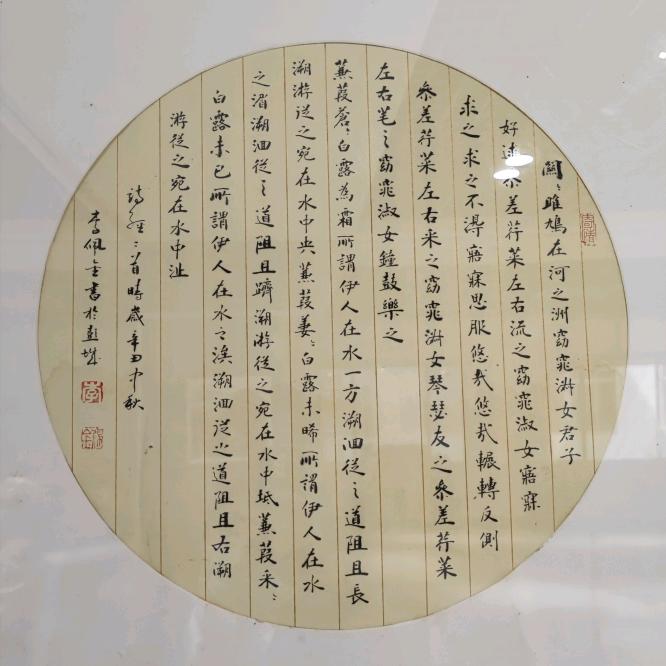 關〻雎鳩在河之洲窈窕淑女君子
好逑參差荇菜左右流之窈窕淑女寤寐
求之求之不得寤寐思服悠哉悠哉輾轉反側
參差荇菜左右采之窈窕淑女琴瑟友之參差荇菜
左右芼之窈窕淑女鐘鼓樂之
蒹葭蒼〻白露為霜所謂伊人在水一方溯洄從之道阻且長
溯游從之宛在水中央蒹葭萋〻白露未晞所謂伊人在水
之湄溯洄從之道阻且躋溯游從之宛在水中坻蒹葭采〻
白露未已所謂伊人在水之涘溯洄從之道阻且右溯
游從之宛在水中沚
詩經二首時歲辛丑中秋
李佩金書於彭城